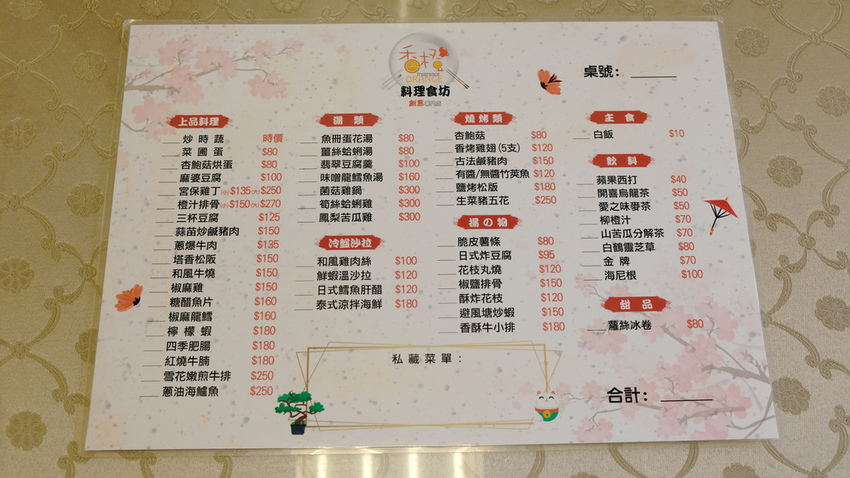 香橙
ORANGE
料理食坊
桌號：
上品料理
炒 時 蔬 時價
菜 圃 蛋 $80
杏鮑菇烘蛋 $80
麻婆豆腐 $100
宮保雞丁(小)$135(大)$250
橙汁排骨(小)$150(大)$270
三杯豆腐 $125
蒜苗炒鹹豬肉 $150
蔥爆牛肉 $135
塔香松阪 $150
和風牛燒 $150
椒麻雞 $150
糖醋魚片 $160
椒麻龍鱈 $160
檸 檬 蝦 $180
四季肥腸 $180
紅燒牛腩 $180
雪花嫩煎牛排 $250
蔥油海鱸魚 $250
湯 類
魚冊蛋花湯 $80
薑絲蛤蜊湯 $80
翡翠豆腐羹 $100
味噌龍鱈魚湯 $160
菌菇雞鍋 $300
筍絲蛤蜊雞 $300
鳳梨苦瓜雞 $300
冷盤沙拉
和風雞肉絲 $100
鮮蝦溫沙拉 $120
日式鱈魚肝醋 $120
泰式涼拌海鮮 $180
燒烤類
杏鮑菇 $80
香烤雞翅(5支) $120
古法鹹豬肉 $150
有醬/無醬竹莢魚 $120
鹽烤松版 $180
生菜豬五花 $250
揚の物
脆皮薯條 $80
日式炸豆腐 $95
花枝丸燒 $120
椒鹽排骨 $150
酥炸花枝 $120
避風塘炒蝦 $150
香酥牛小排 $180
主 食
白飯 $10
飲 料
蘋果西打 $40
開喜烏龍茶 $50
愛之味麥茶 $50
柳橙汁 $70
山苦瓜分解茶 $70
白鶴靈芝草 $80
金 牌 $70
海尼根 $100
甜 品
蘿絲冰卷 $80
私藏菜單：
合計：